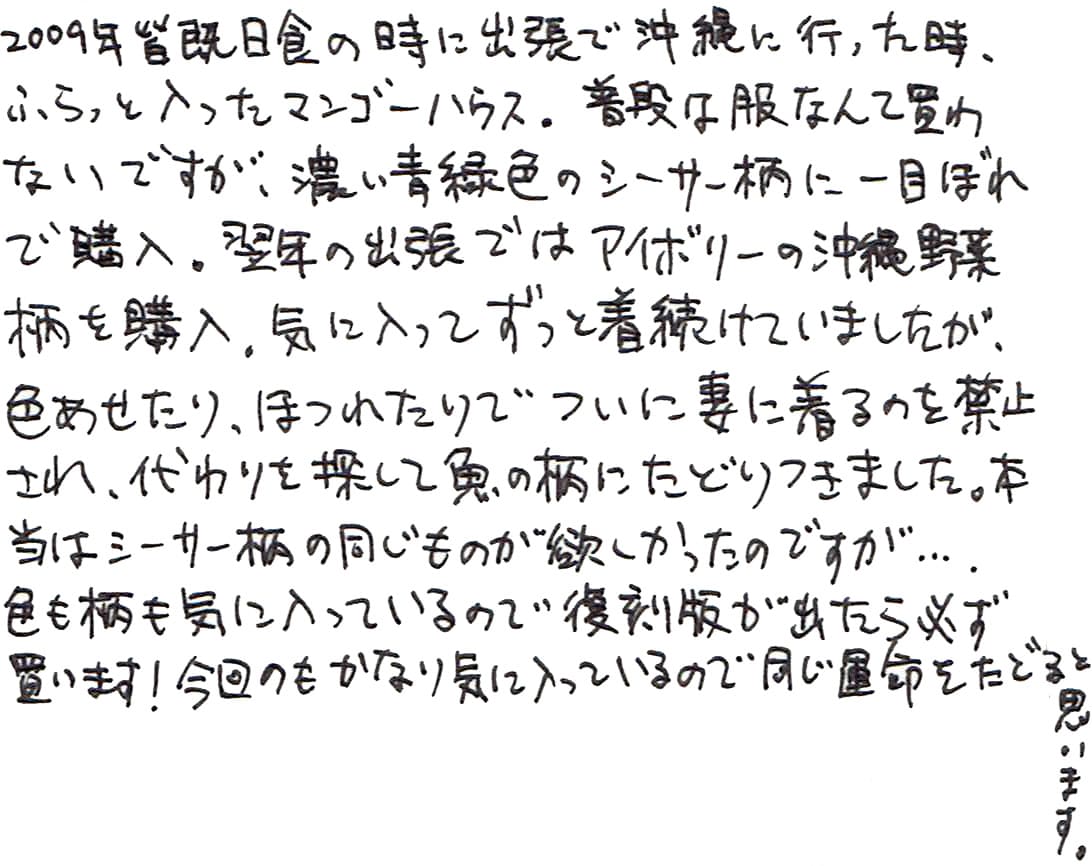 2009年皆既日食の時に出張で沖縄に行った時、
ふらっと入ったマンゴーハウス。普段は服なんて買わ
ないですが、濃い青緑色のシーサー柄に一目ぼれ
で購入。翌年の出張ではアイボリーの沖縄野菜
柄を購入。気に入ってずっと着続けていましたが、
色あせたり、ほつれたりでついに妻に着るのを禁止
され、代わりを探して魚の柄にたどりつきました。本
当はシーサー柄の同じものが欲しかったのですが….
色も柄も気に入っているので復刻版が出たら必ず
買います!今回のもかなり気に入っているので同じ運命をたどると
思います。